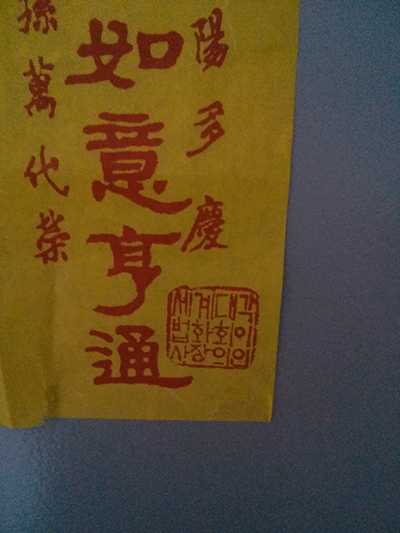 陽多慶
如意亨通
孫萬代榮
세계대각
법화회이
사장의인